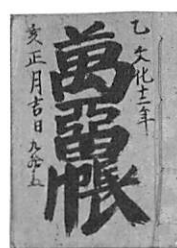 乙文化十二年
萬留帳
亥正月吉日